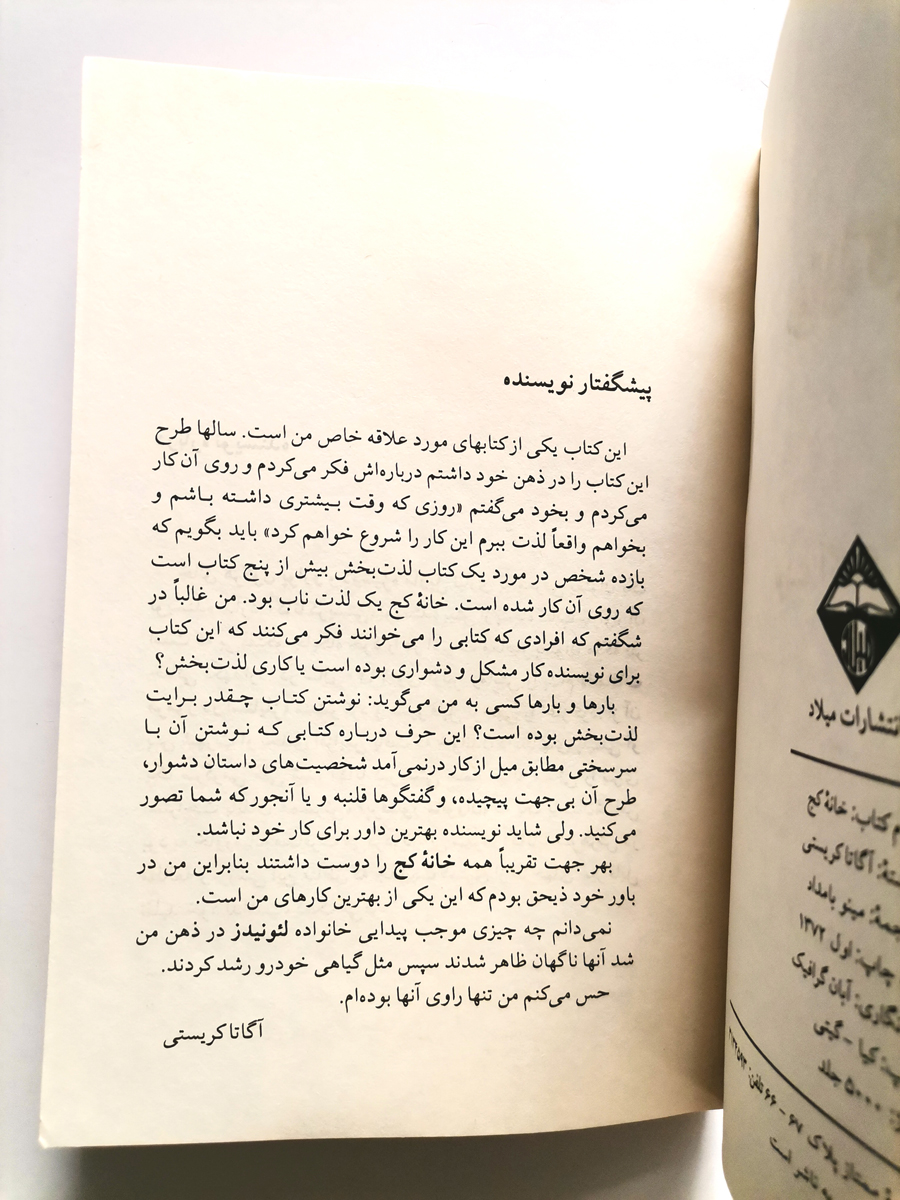 پیشگفتار نویسنده
این کتاب یکی از کتابهای مورد علاقه خاص من است. سالها طرح
این کتاب را در ذهن خود داشتم درباره‌اش فکر می‌کردم و روی آن کار
می‌کردم و بخود می‌گفتم «روزی که وقت بیشتری داشته باشم و
بخواهم واقعاً لذت ببرم این کار را شروع خواهم کرد» باید بگویم که
بازده شخص در مورد یک کتاب لذت‌بخش بیش از پنج کتاب است
که روی آن کار شده است. خانهٔ کج یک لذت ناب بود. من غالباً در
شگفتم که افرادی که کتابی را می‌خوانند فکر می‌کنند که این کتاب
برای نویسنده کار مشکل و دشواری بوده است یا کاری لذت‌بخش؟
بارها و بارها کسی به من می‌گوید: نوشتن کتاب چقدر برایت
لذت‌بخش بوده است؟ این حرف درباره کتابی که نوشتن آن با
سرسختی مطابق میل از کار درنمی‌آمد شخصیت‌های داستان دشوار،
طرح آن بی‌جهت پیچیده، و گفتگوها قلنبه و یا آنجور که شما تصور
می‌کنید. ولی شاید نویسنده بهترین داور برای کار خود نباشد.
بهر جهت تقریباً همه خانهٔ کج را دوست داشتند بنابراین من در
باور خود ذیحق بودم که این یکی از بهترین کارهای من است.
نمی‌دانم چه چیزی موجب پیدایی خانواده لئونیدز در ذهن من
شد آنها ناگهان ظاهر شدند سپس مثل گیاهی خودرو رشد کردند.
حس می‌کنم من تنها راوی آنها بوده‌ام.
آگاتا کریستی
انتشارات میلاد
کتاب: خانهٔ کج
آگاتا کریستی
مینو بامداد
چاپ: اول ۱۳۷۲
آبان گرافیک
کیا – گیتی
۵۰۰۰ جلد
ممتاز پلاک ۶۷ – ۶۶ تلفن:
ناشر است